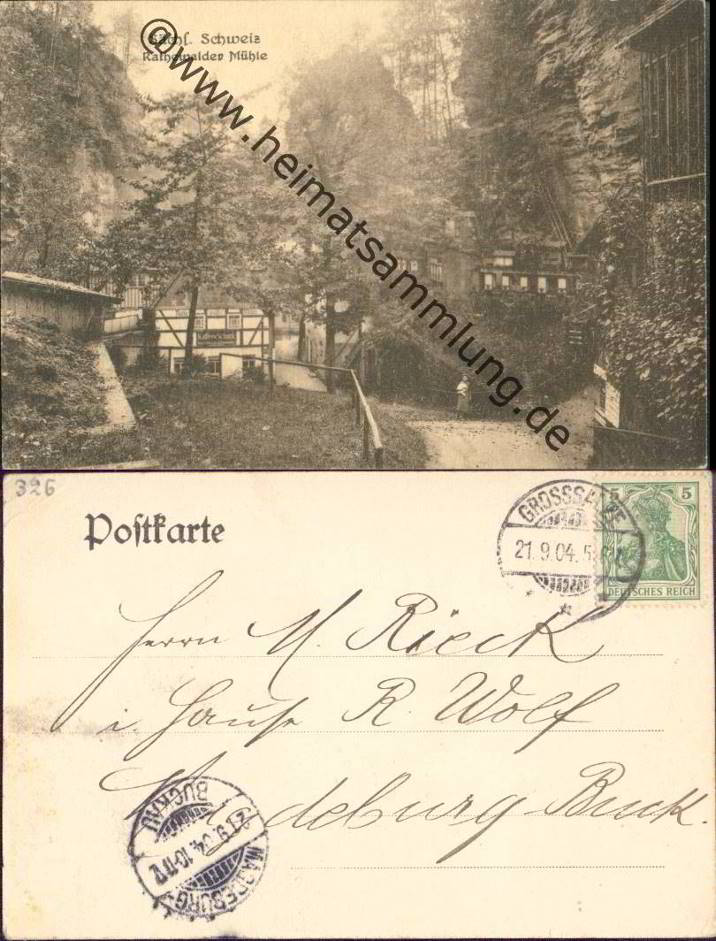 Sächs. Schweiz
Rathewalder Mühle
©www.heimatsammlung.de
326
Postkarte
GROSSSALZE
21.9.04.5
5 5
DEUTSCHES REICH
Herrn M. Rieck
i. Hause R. Wolf
Magdeburg Buck.
MAGDEBURG
BUCKAU
21.9.04.10-11